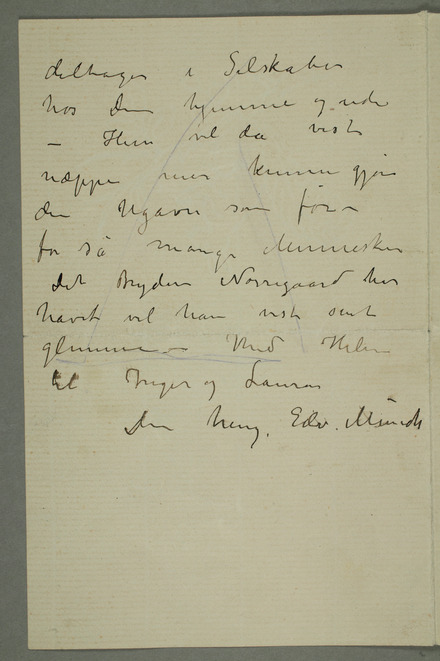 deltager i Selskaber
hos dem hjemme og ude
– Hun vil da vist
næppe mer kunne gjøre
dem Ugavn som før –
for så mange Mennesker
Det Bryderi Nørregaard har
havt vil han vist sent
glemme – Med Hilsen
til Inger og Laura
Din heng. Edv. Munch